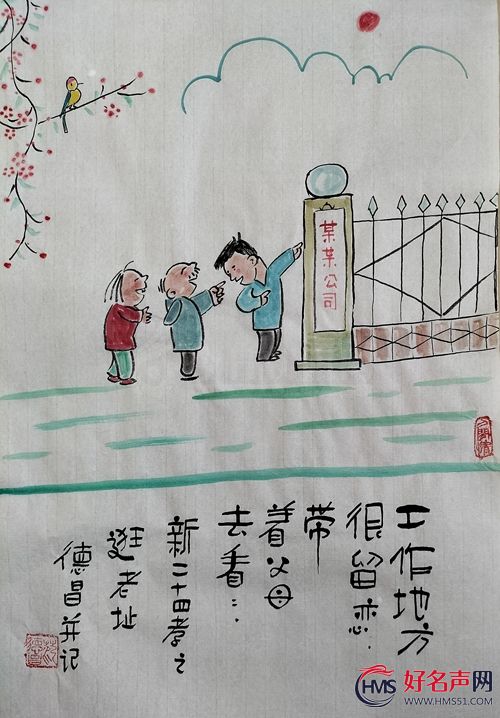 某某公司
工作地方
很留恋.
带
着父母
去看:.
新二十四孝之
逛老址
德昌并记
HMS
好名声网
WWW.HMS51.COM